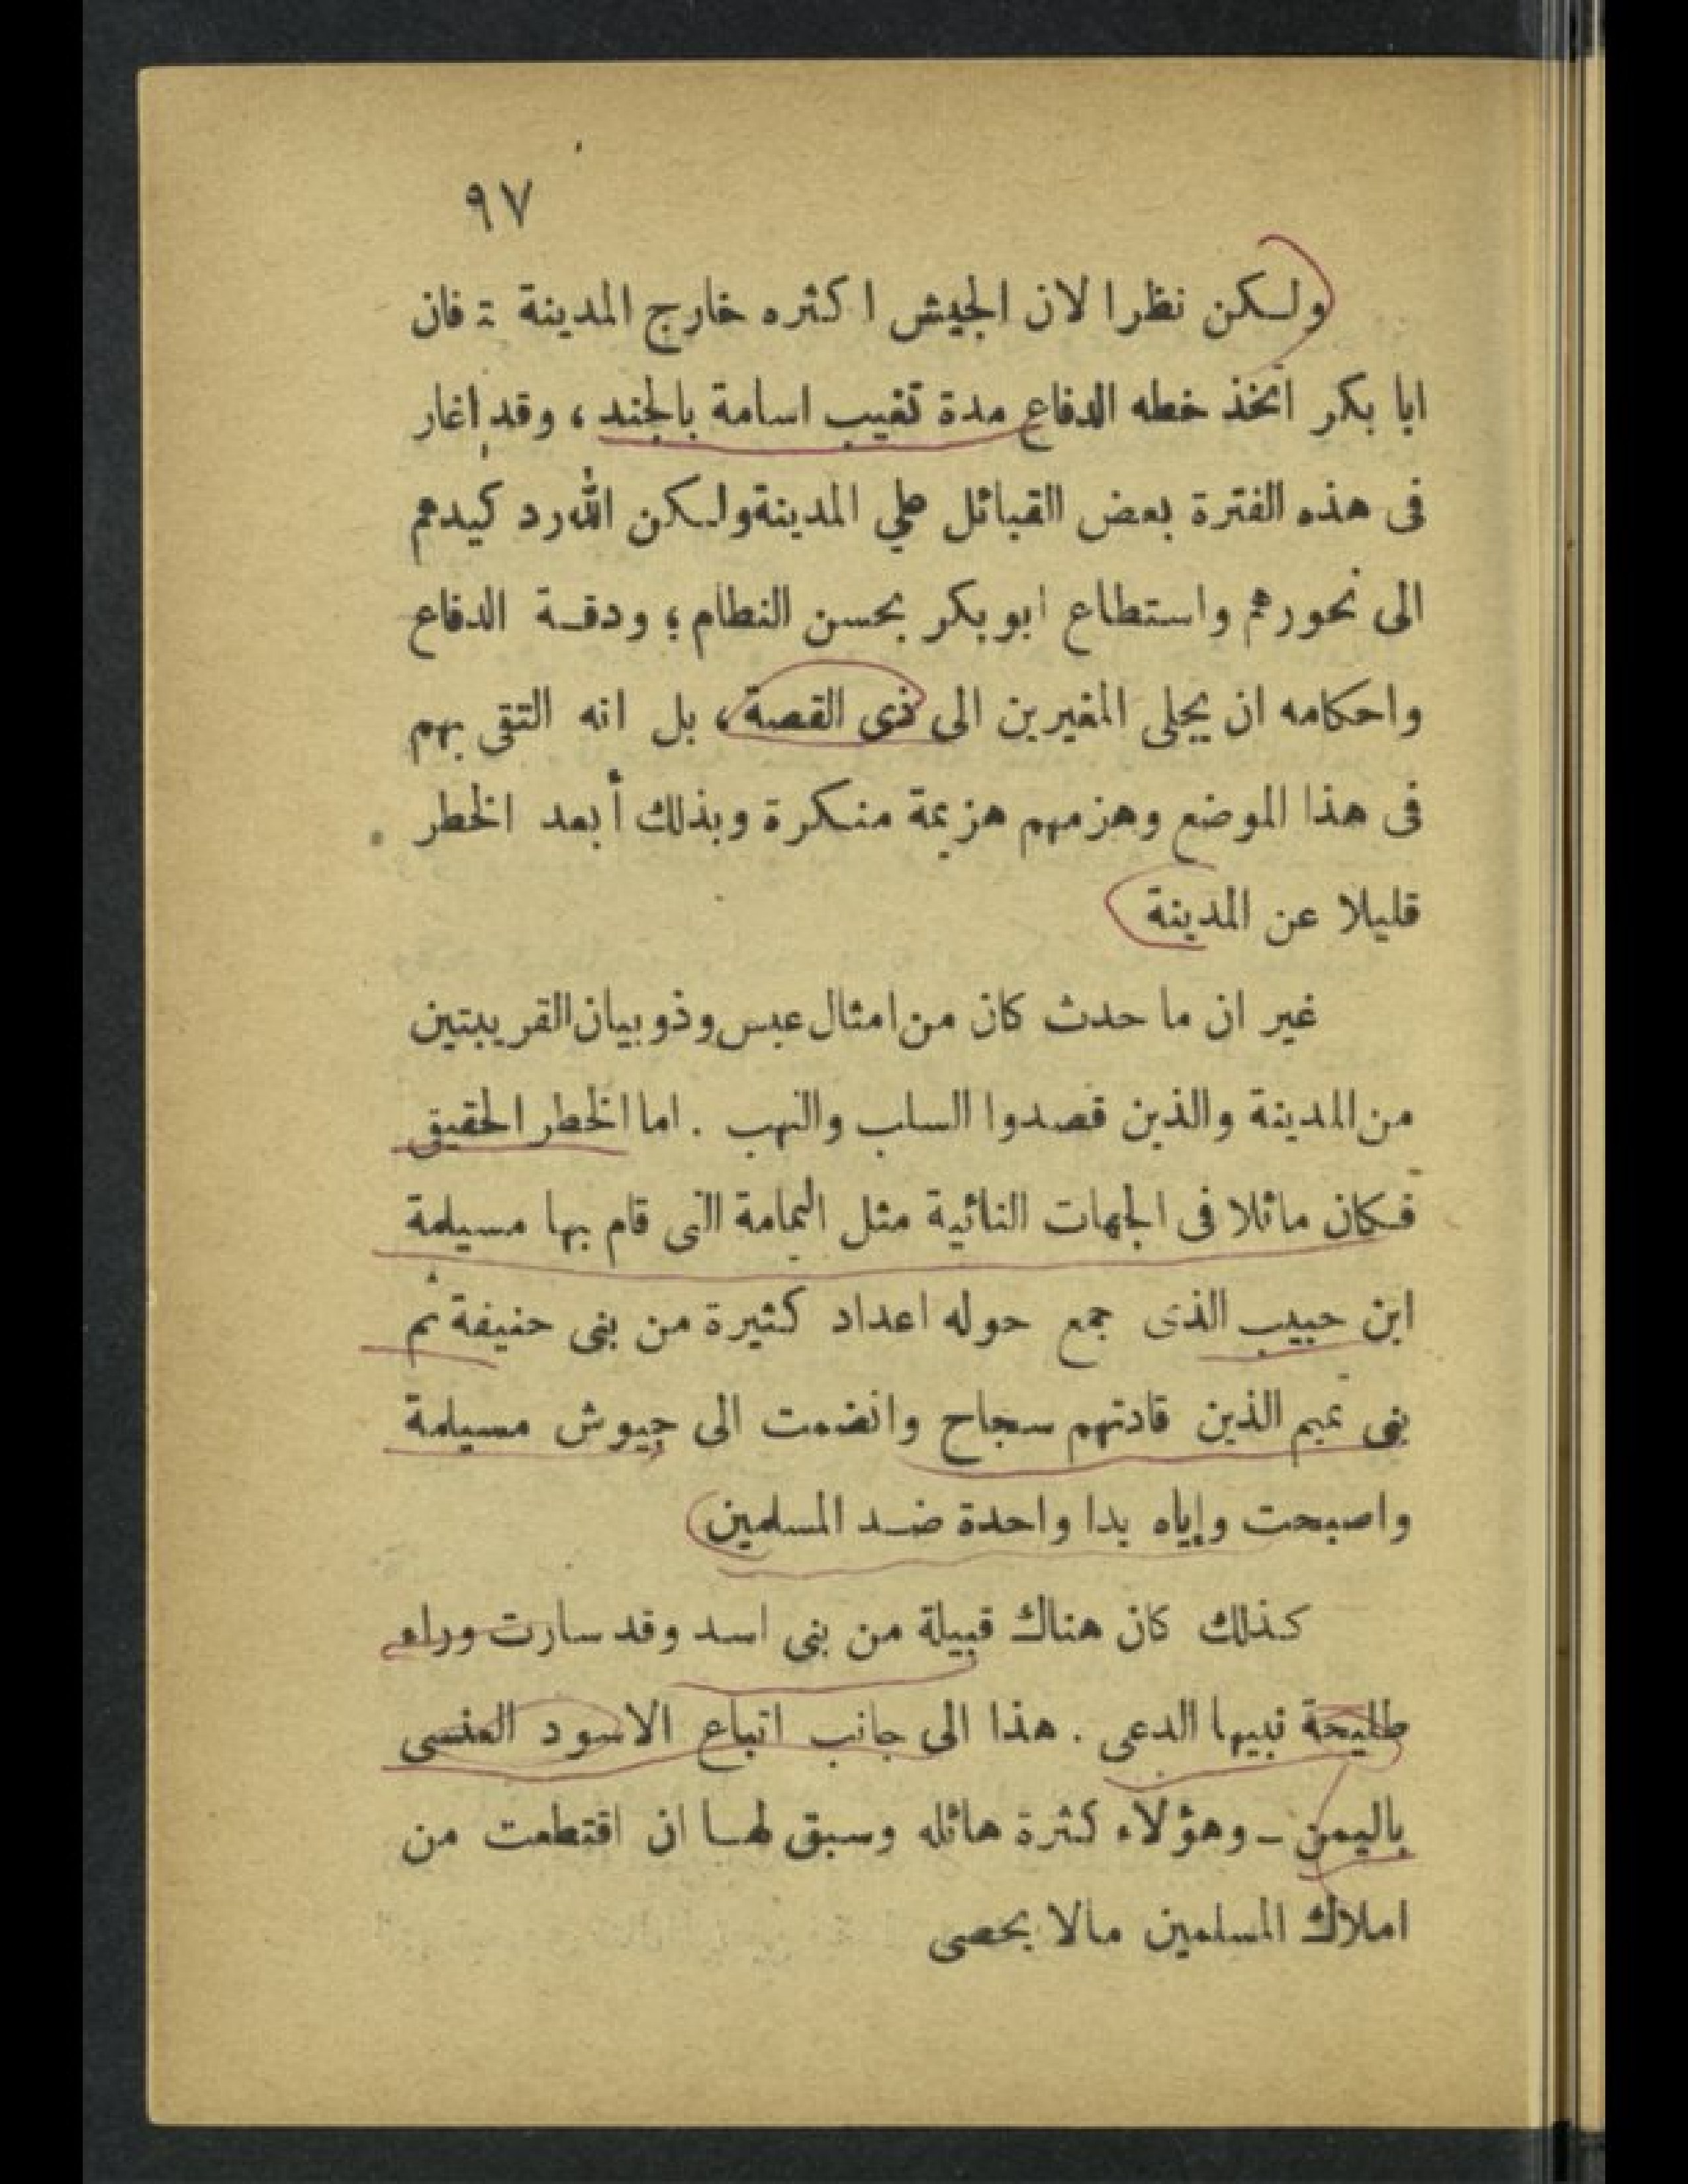 ٩٧
ولكن نظرا لان الجيش اكثره خارج المدينة ـ فان
ابا بكر اتخذ خطه الدفاع مدة تغيب اسامة بالجند ، وقد اغار
فى هذه الفترة بعض القبائل على المدينة ولكن الله رد كيدهم
الى نحورهم واستطاع ابو بكر بحسن النظام ؛ ودقة الدفاع
واحكامه ان يجلى المغيرين الى ذى القصة ، بل انه التقى بهم
فى هذا الموضع وهزمهم هزيمة منكرة وبذلك أبعد الخطر
قليلا عن المدينة
غير ان ما حدث كان من امثال عبس وذو بيان القريبتين
من المدينة والذين قصدوا السلب والنهب . اما الخطر الحقيقى
فكان ماثلا فى الجهات النائية مثل اليمامة التى قام بها مسيلمة
ابن حبيب الذى جمع حوله اعداد كثيرة من بنى حنيفة ثم
بنى تميم الذين قادتهم سجاح وانضمت الى جيوش مسيلمة
واصبحت وإياه يدا واحدة ضد المسلمين
كذلك كان هناك قبيلة من بنى اسد وقد سارت وراء
طليحة نبيها الدعى . هذا الى جانب اتباع الاسود العنسى
باليمن ـ وهؤلاء كثرة هائله وسبق لها ان اقتطعت من
املاك المسلمين مالا يحصى